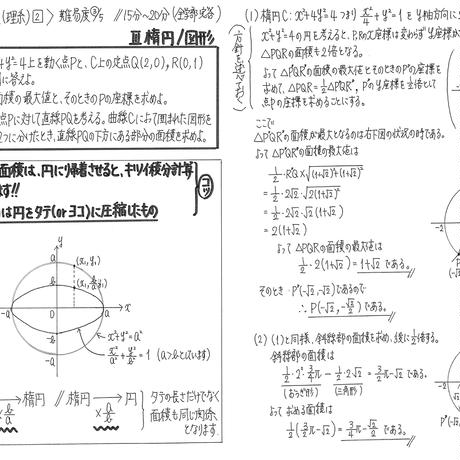 (理系) 2 > 難易度 // 15分~20分
III 楕円/図形
+4y²=4上を動く点Pと、C上の定点Q(2,0), R(0,1)
に答えよ。
面積の最大値と、そのときのPの座標を求めよ。
点Pに対して直線PQを考える。曲線Cによって囲まれた図形を
2つに分けたとき、直線PQの下方にある部分の面積を求めよ。
面積は、円に帰着させると、キツイ積分計算
ます!!
は円をタテ(orヨコ)に圧縮したもの
コツ
y
a
(x₁, y₁)
(x₁, b/a y₁)
b
-a
O
a
x
-b
-a
x²+y²=a²
x²/a²+y²/b²=1 (a>bとしています)
→ 楕円 // 楕円 → 円
×b/a ×a/b
タテの長さだけでなく
面積も同じ関係に
なります。
方針を述べておく
(1) 楕円C: x²+4y²=4 つまり x²/4+y²=1 を y軸方向に
x²+y²=4 の円を考えると、P,Rのx座標は変わらずy座標が
△PQRの面積も2倍となる。
よって △P'QR'の面積の最大値とそのときのP'の座標を
求めて、△PQR=1/2△P'QR'、P'のy座標を1/2倍して
点Pの座標を求めることにする。
ここで
△P'QR'の面積が最大となるのは右下図の状況の時である。
よって △P'QR'の面積の最大値は
1/2・R'Q×√((1+√2)²+(1+√2)²)
=1/2・2√2・√(2(1+√2)²)
=1/2・2√2・√2(1+√2)
=2(1+√2)
よって △PQRの面積の最大値は
1/2・2(1+√2)=1+√2 である。
そのとき P'(-√2,-√2)であるので
∴ P(-√2,-√2/2) である。
(2) (1)と同様、斜線部の面積を求め、後に1/2倍する。
斜線部の面積は
1/2・2²・3/4π - 1/2・2・√2 = 3/2π-√2 である。
(おうぎ形) (三角形)
よって 求める面積は
1/2(3/2π-√2)=3/4π-√2/2 である。
-2
-2
P'(-√2